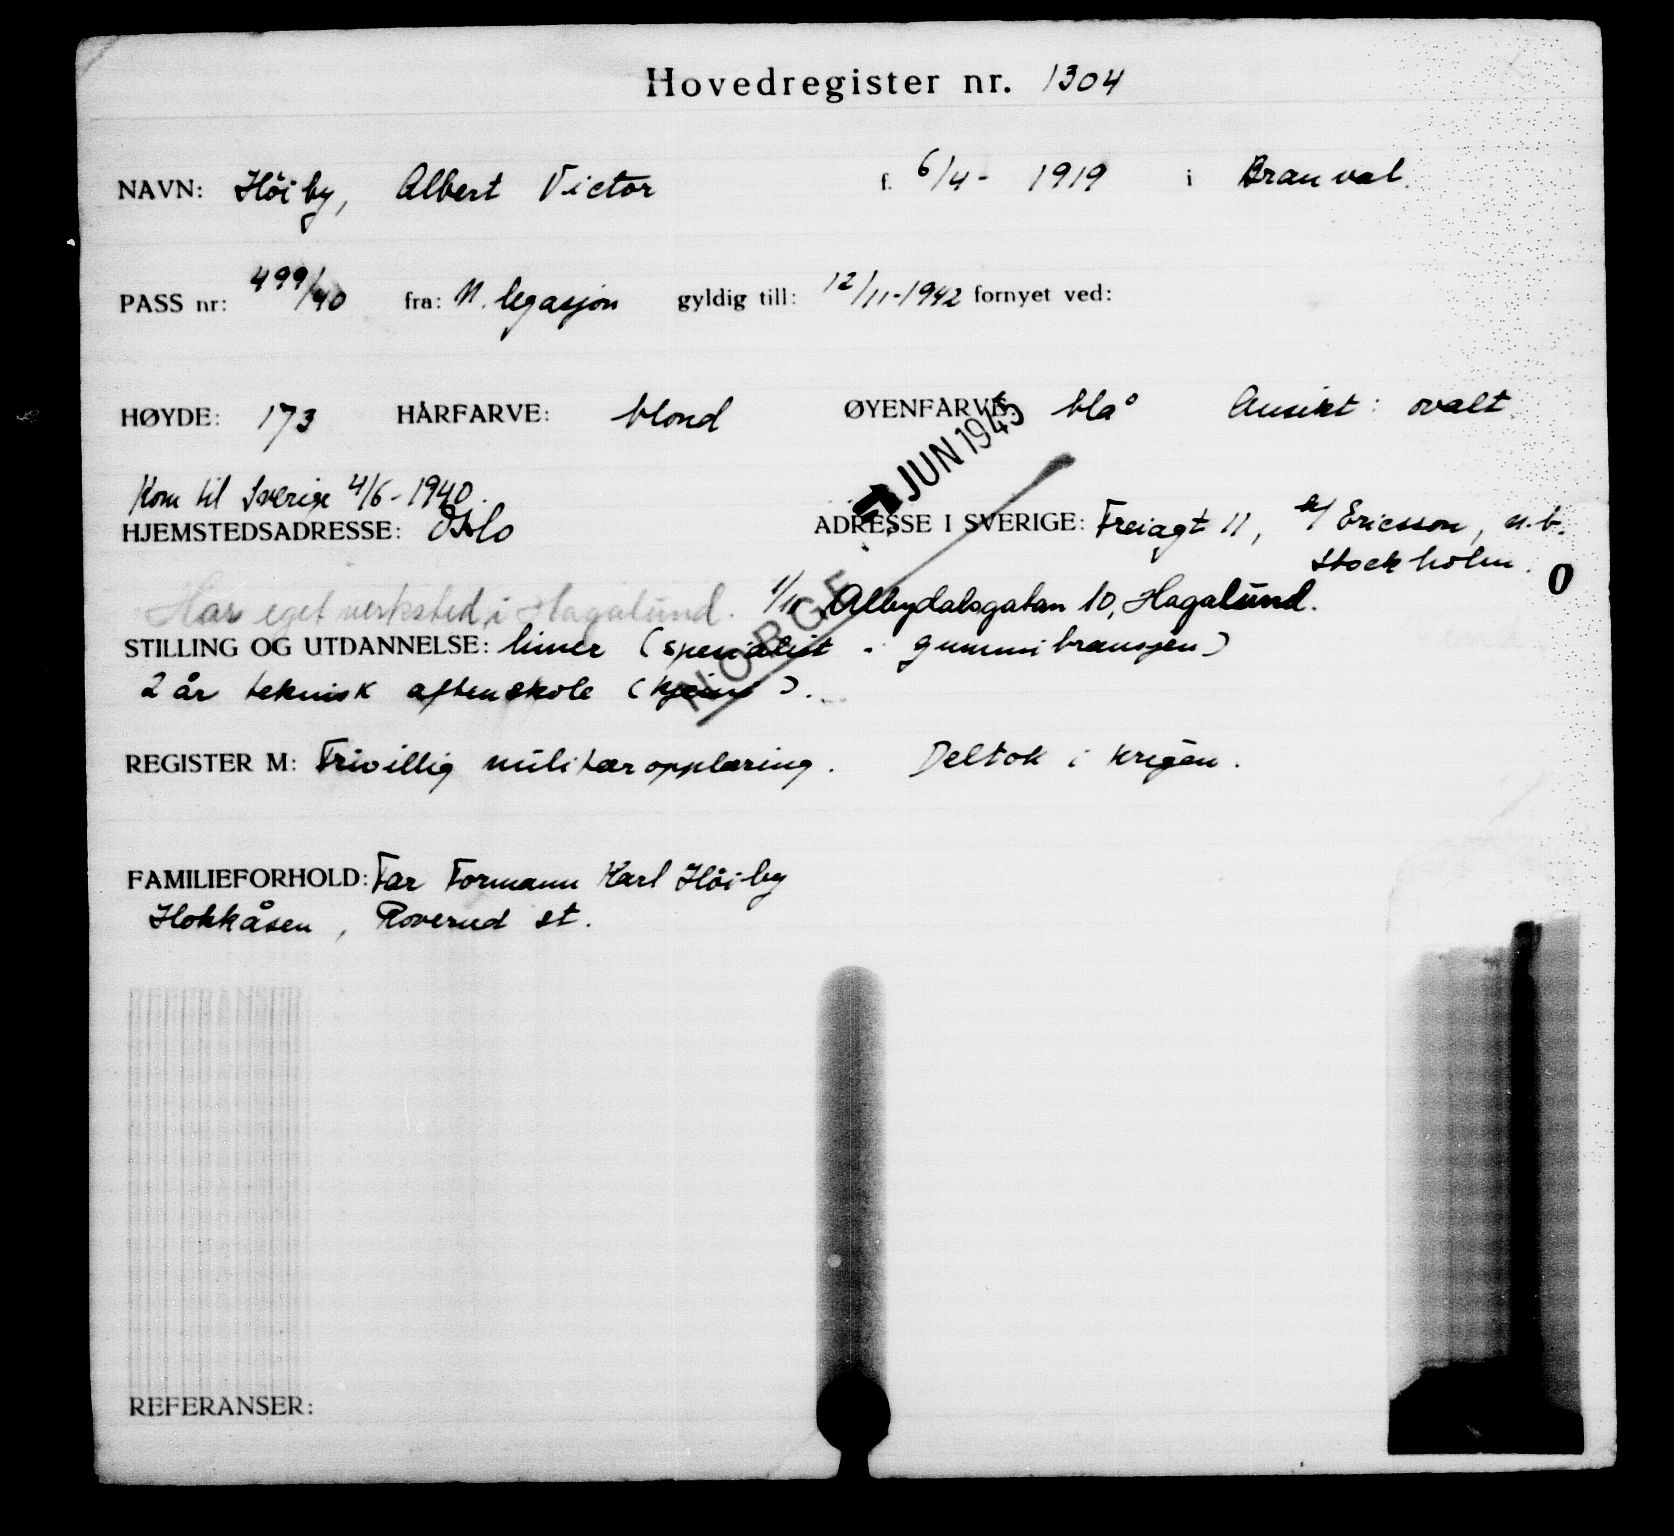 Hovedregister nr. 1304
NAVN: Höiby, Albert Victor f. 6/4 - 1919 i Branval.
PASS nr: 499/40 fra: N. legasjon gyldig till: 12/11-1942 fornyet ved:
HØYDE: 173 HÅRFARVE: blond ØYENFARVE: blå Ansikt: ovalt
JUN 1945
Kom til Sverige 4/6 - 1940.
HJEMSTEDSADRESSE: Oslo ADRESSE I SVERIGE: Freiagt 11, c/ Ericsson, n.b.
Stockholm. O
Har eget verksted i Hagalund. 1/11 Albydalsgatan 10, Hagalund.
NORGE
STILLING OG UTDANNELSE: limer (spesialist i gummibransjen)
2 år teknisk aftenskole (kjemi).
REGISTER M: Frivillig militæropplæring. Deltok i krigen.
FAMILIEFORHOLD: Far Formann Karl Höiby
Hokkåsen, Roverud st.
REFERANSER: